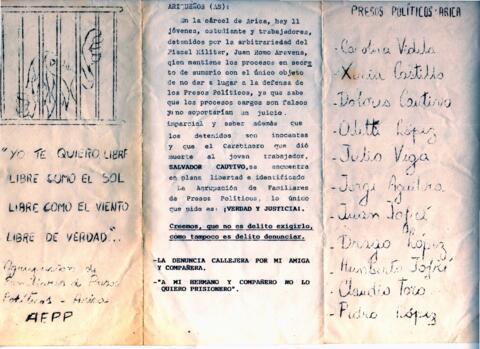 "YO TE QUIERO LIBRE
LIBRE COMO EL SOL
LIBRE COMO EL VIENTO
LIBRE DE VERDAD"...
Agrupación de
Familiares de Presos
Políticos - Arica
AFPP
ARIQUEÑOS (AS):
En la cárcel de Arica, hay 11
jóvenes, estudiante y trabajadores,
detenidos por la arbitrariedad del
Fiscal Militer, Juan Romo Aravena,
quien mentiene los procesos en secre
to de sumario con el único objeto
de no dar a lugar a la defensa de
los Presos Políticos, ya que sabe
que los procesos cargos son falsos
y no soportarían un juicio.
imparcial y sabez además que
los detenidos son inocentes
y que el Carabinero que dió
muerte al joven trabajador,
SALVADOR CAUTIVO, se encuentra
en plena libertad e identificado
La Agrupación de Familiares
de Presos Políticos, lo único
que pide es: ¡VERDAD Y JUSTICIA!.
Creemos, que no es delito exigirlo,
cómo tampoco es delito denunciar.
-LA DENUNCIA CALLEJERA POR MI AMIGA
Y COMPAÑERA.
-"A MI HERMANO Y COMPAÑERO NO LO
QUIERO PRISIONERO".
PRESOS POLÍTICOS-ARICA
-Carolina Videla
-Castillo
-Dolores Cautivo
-Odette López
-Julio Vega
-Jorge Aguilera
-Juan Tapia
-López
-Humberto
-Claudio Toro
-Pedro López